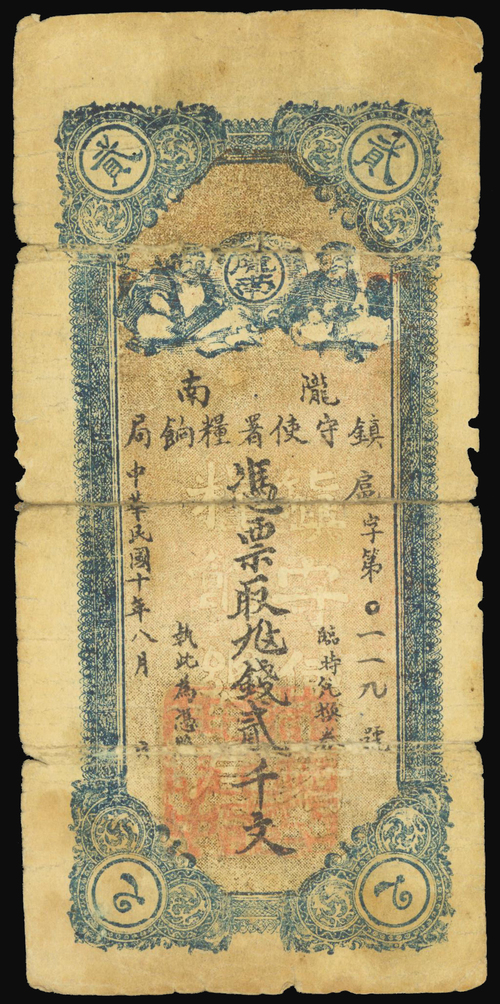 貳 貳
隴南
隴南
鎮守使署糧餉局
字第〇一一九號
臨時兌換券
憑票取 錢貳千文
執此為憑
中華民國十年八月 六
2 2